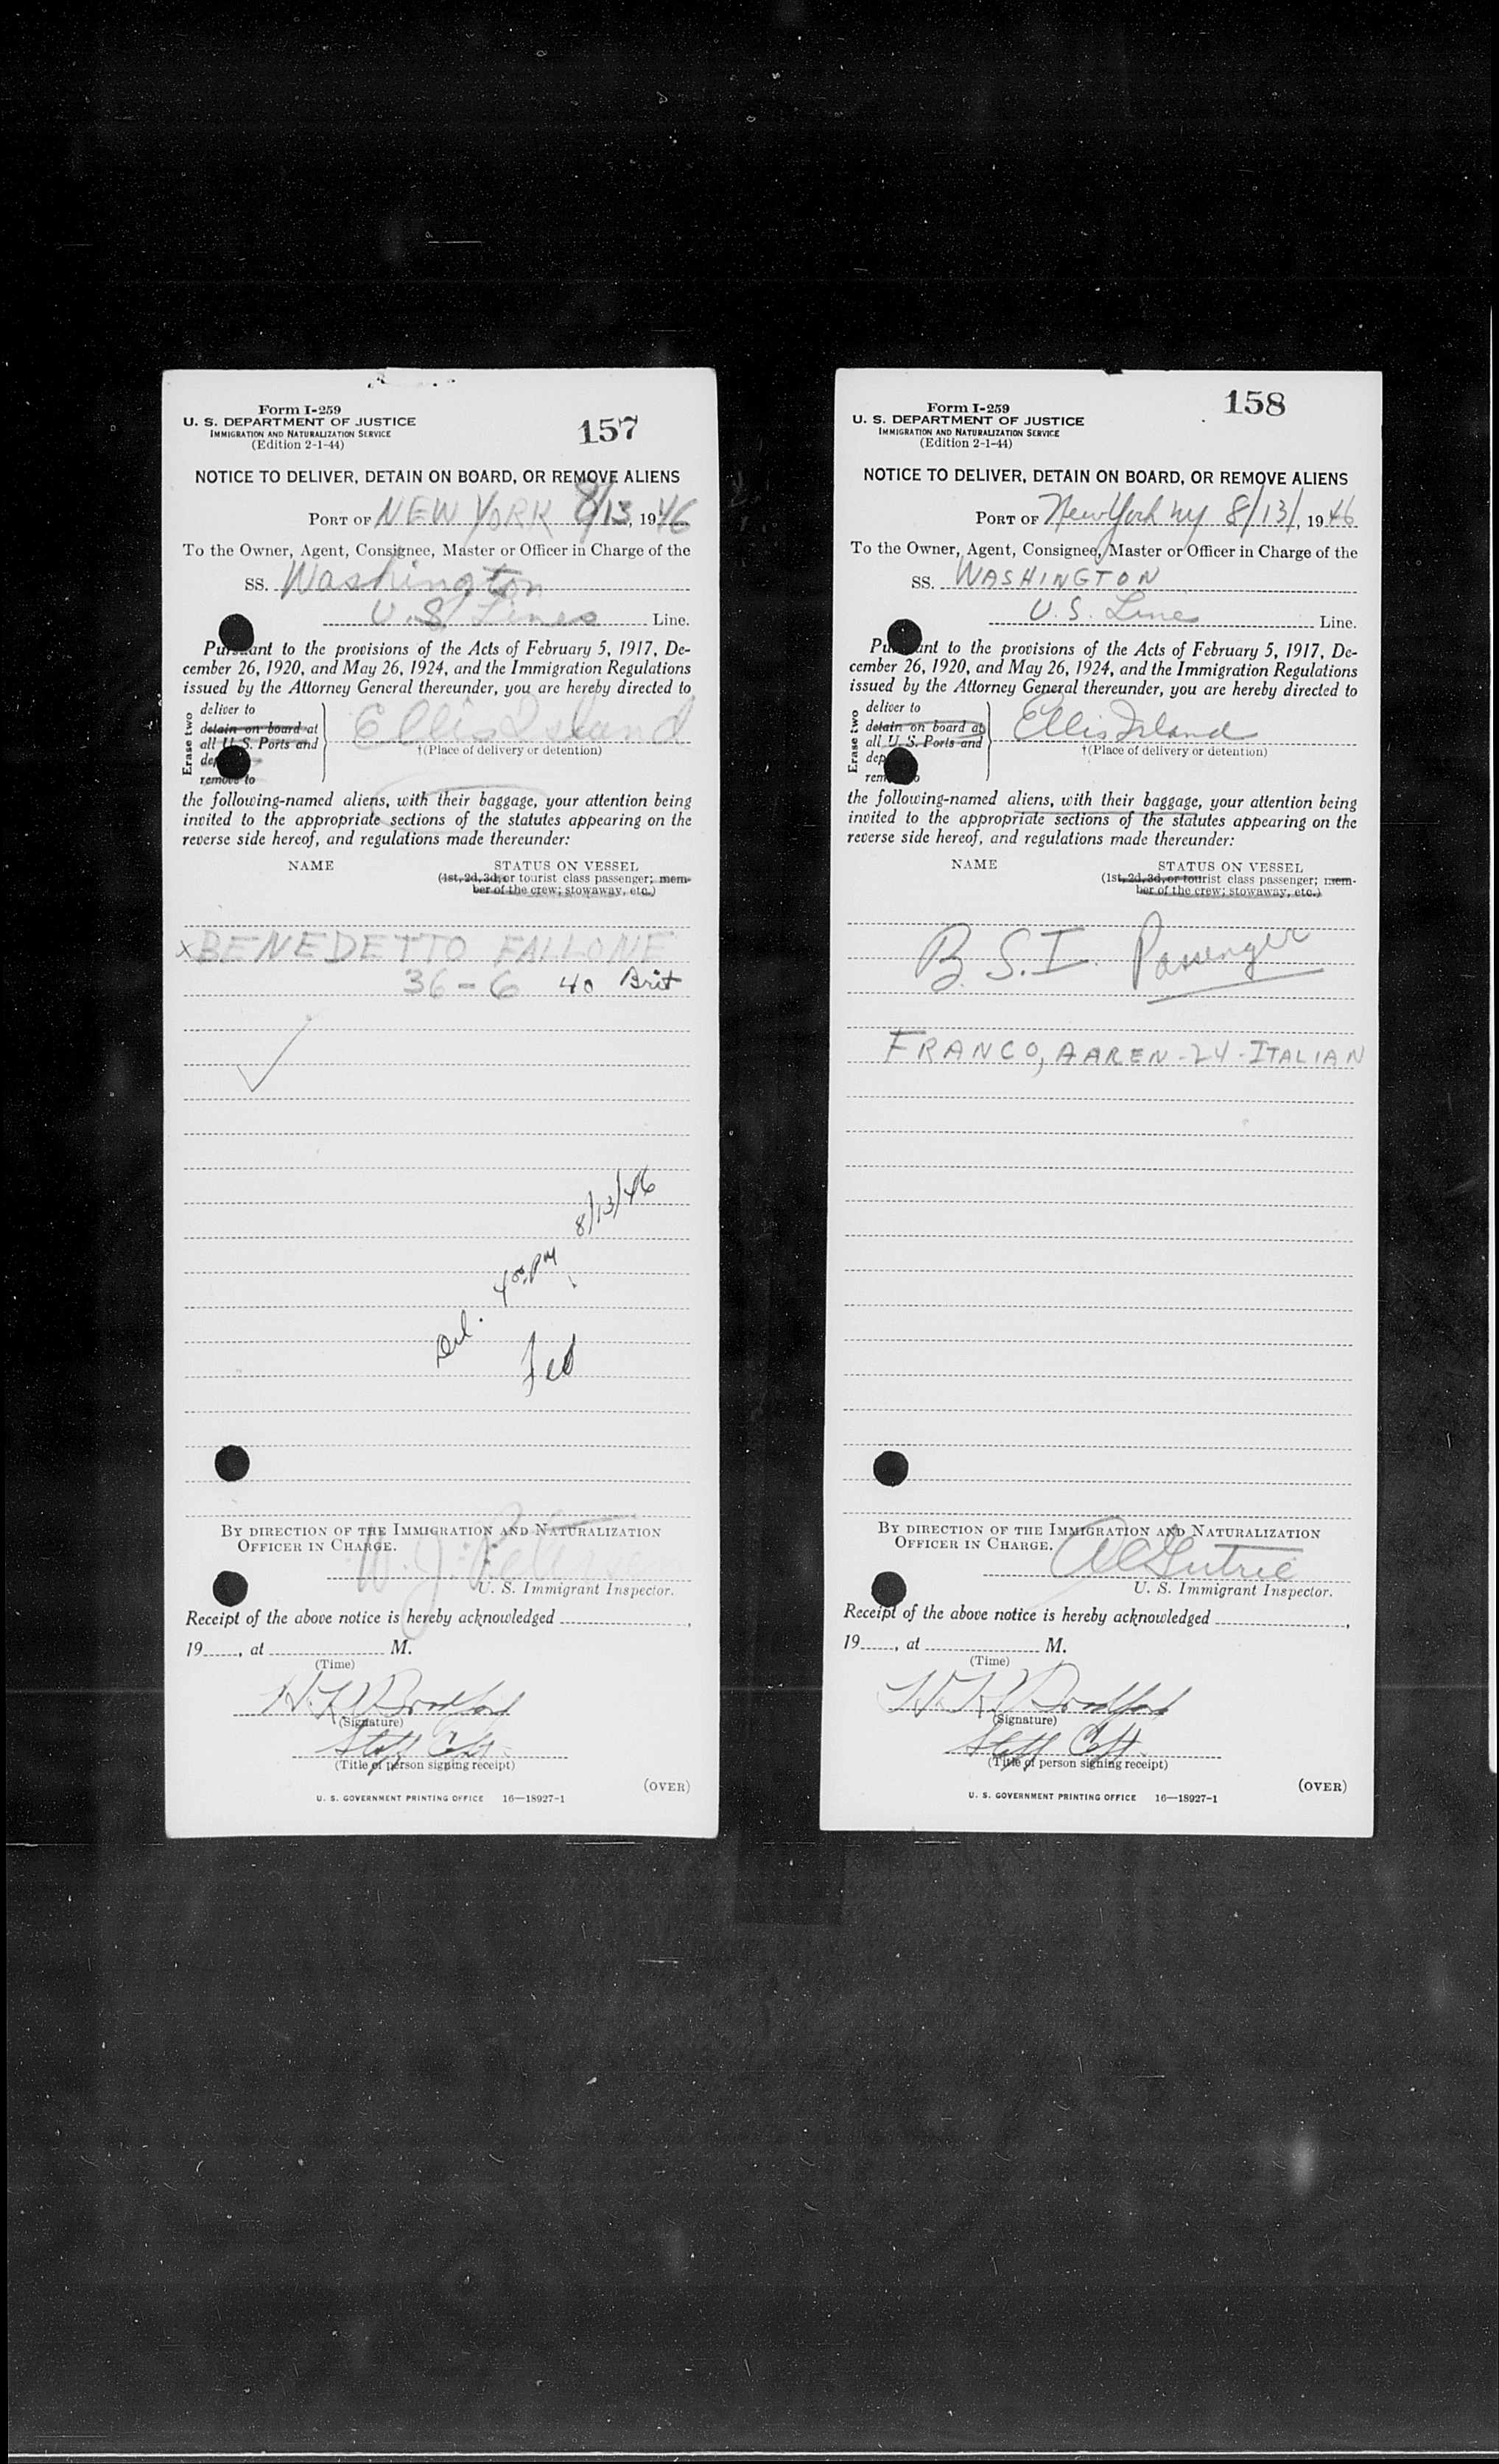 Form I-259
U. S. DEPARTMENT OF JUSTICE
IMMIGRATION AND NATURALIZATION SERVICE
(Edition 2-1-44)
157
NOTICE TO DELIVER, DETAIN ON BOARD, OR REMOVE ALIENS
PORT OF NEW YORK 8/13, 1946
To the Owner, Agent, Consignee, Master or Officer in Charge of the
SS. Washington
U.S. Lines Line.
Pursuant to the provisions of the Acts of February 5, 1917, De-
cember 26, 1920, and May 26, 1924, and the Immigration Regulations
issued by the Attorney General thereunder, you are hereby directed to
Erase two
deliver to
detain on board at
all U. S. Ports and
remove to
Ellis Island
†(Place of delivery or detention)
the following-named aliens, with their baggage, your attention being
invited to the appropriate sections of the statutes appearing on the
reverse side hereof, and regulations made thereunder:
NAME STATUS ON VESSEL
(1st, 2d, 3d, or tourist class passenger; mem-
ber of the crew; stowaway, etc.)
x BENEDETTO FALLONE
36-6 40 Brit
8/13/46
Del. 4 00 PM
BY DIRECTION OF THE IMMIGRATION AND NATURALIZATION
OFFICER IN CHARGE.
W. J.
U. S. Immigrant Inspector.
Receipt of the above notice is hereby acknowledged ,
19 , at M.
(Time)
(Signature)
Staff Capt.
(Title of person signing receipt)
(OVER)
U. S. GOVERNMENT PRINTING OFFICE 16—18927-1
Form I-259
U. S. DEPARTMENT OF JUSTICE
IMMIGRATION AND NATURALIZATION SERVICE
(Edition 2-1-44)
158
NOTICE TO DELIVER, DETAIN ON BOARD, OR REMOVE ALIENS
PORT OF New York NY 8/13/, 1946
To the Owner, Agent, Consignee, Master or Officer in Charge of the
SS. WASHINGTON
U.S. Line Line.
Pursuant to the provisions of the Acts of February 5, 1917, De-
cember 26, 1920, and May 26, 1924, and the Immigration Regulations
issued by the Attorney General thereunder, you are hereby directed to
Erase two
deliver to
detain on board at
all U. S. Ports and
Ellis Island
†(Place of delivery or detention)
the following-named aliens, with their baggage, your attention being
invited to the appropriate sections of the statutes appearing on the
reverse side hereof, and regulations made thereunder:
NAME STATUS ON VESSEL
(1st, 2d, 3d, or tourist class passenger; mem-
ber of the crew; stowaway, etc.)
B.S.I. Passenger
FRANCO, AAREN - 24 - ITALIAN
BY DIRECTION OF THE IMMIGRATION AND NATURALIZATION
OFFICER IN CHARGE.
U. S. Immigrant Inspector.
Receipt of the above notice is hereby acknowledged ,
19 , at M.
(Time)
(Signature)
Staff Capt.
(Title of person signing receipt)
(OVER)
U. S. GOVERNMENT PRINTING OFFICE 16—18927-1